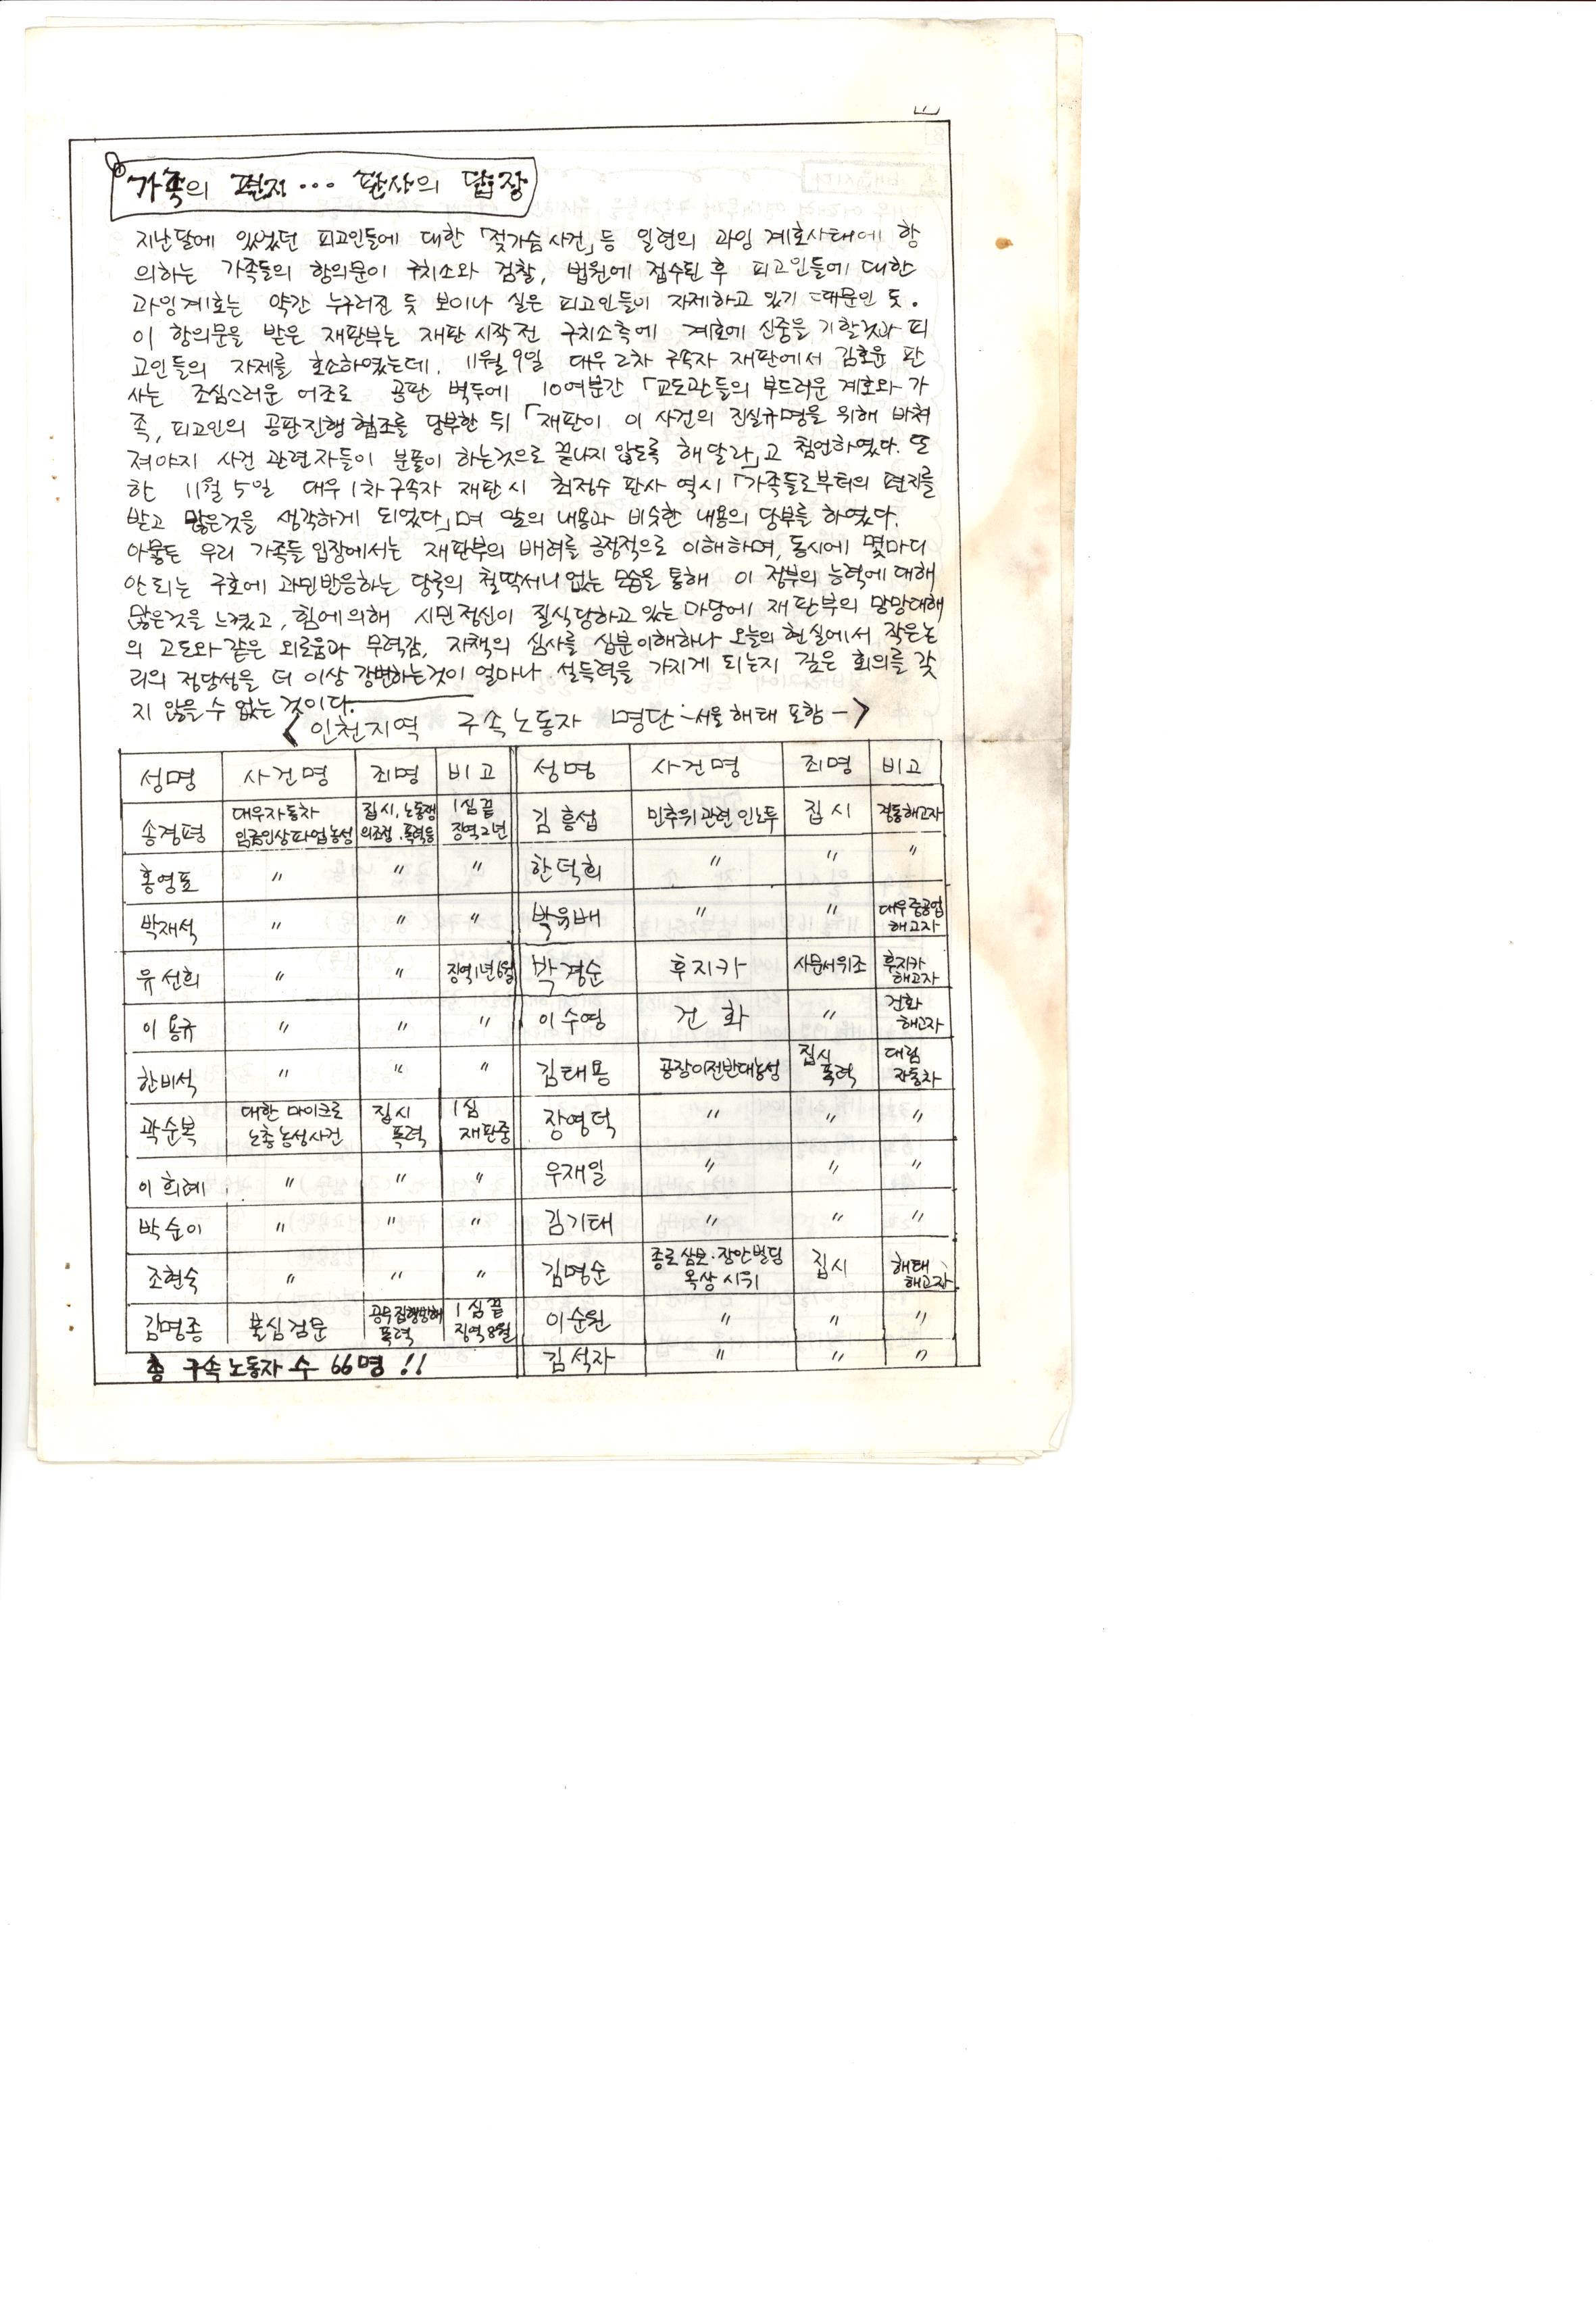 가족의 편지... 판사의 답장
지난달에 있었던 피고인들에 대한 「젖가슴 사건」등 일련의 과잉 계호사태에 항
의하는 가족들의 항의문이 구치소와 검찰, 법원에 접수된 후 피고인들에 대한
과잉계호는 약간 누구러진 듯 보이나 실은 피고인들이 자제하고 있기 때문인 듯.
이 항의문을 받은 재판부는 재판 시작 전 구치소측에 계호에 신중을 기할것과 피
고인들의 자제를 호소하였는데, 11월 9일 대우 2차 구속자 재판에서 김호윤 판
사는 조심스러운 어조로 공판 벽두에 10여분간 「교도관들의 부드러운 계호와 가
족, 피고인의 공판진행 협조를 당부한 뒤 「재판이 이 사건의 진실규명을 위해 바쳐
져야지 사건 관련자들이 분풀이 하는것으로 끝나지 않도록 해 달라」고 첨언하였다. 또
한 11월 5일 대우 1차 구속자 재판시 최정수 판사 역시 「가족들로부터의 편지를
받고 많은것을 생각하게 되었다」며 앞의 내용과 비슷한 내용의 당부를 하였다.
아뭏든 우리 가족들 입장에서는 재판부의 배려를 긍정적으로 이해하며, 동시에 몇마디
안 되는 구호에 과민반응하는 당국의 철딱서니 없는 모습을 통해 이 정부의 능력에 대해
많은것을 느꼈고, 힘에 의해 시민정신이 질식당하고 있는 마당에 재판부의 망망대해
의 고도와 같은 외로움과 무력감, 자책의 심사를 십분이해하나 오늘의 현실에서 작은논
리의 정당성을 더 이상 강변하는것이 얼마나 설득력을 가지게 되는지 깊은 회의를 갖
지 않을 수 없는 것이다.
<인천지역 구속노동자 명단 -서울 해태 포함->
성명 사건명 죄명 비고 성명 사건명 죄명 비고
송경평 대우자동차 임금인상파업농성 집시, 노동쟁의조정, 폭력등 1심끝 징역2년 김흥섭 민추위 관련 인노투 집시 경동해고자
홍영표 〃 〃 〃 한덕희 〃 〃 〃
박재석 〃 〃 〃 박유배 〃 〃 대우중공업 해고자
유선희 〃 〃 징역1년6월 박경순 후지카 사문서위조 후지카 해고자
이용규 〃 〃 〃 이수영 건화 〃 건화 해고자
한비석 〃 〃 〃 김태용 공장이전반대농성 집시 폭력 대림 자동차
곽순복 대한 마이크로 노총농성사건 집시 폭력 1심 재판중 장영덕 〃 〃 〃
이희례 〃 〃 〃 우재일 〃 〃 〃
박순이 〃 〃 〃 김기태 〃 〃 〃
조현숙 〃 〃 〃 김명순 종로삼문·장안빌딩 옥상 시위 집시 해태 해고자
김명종 불심검문 공무집행방해 폭력 1심끝 징역8월 이순원 〃 〃 〃
총 구속노동자 수 66명!! 김석자 〃 〃 〃